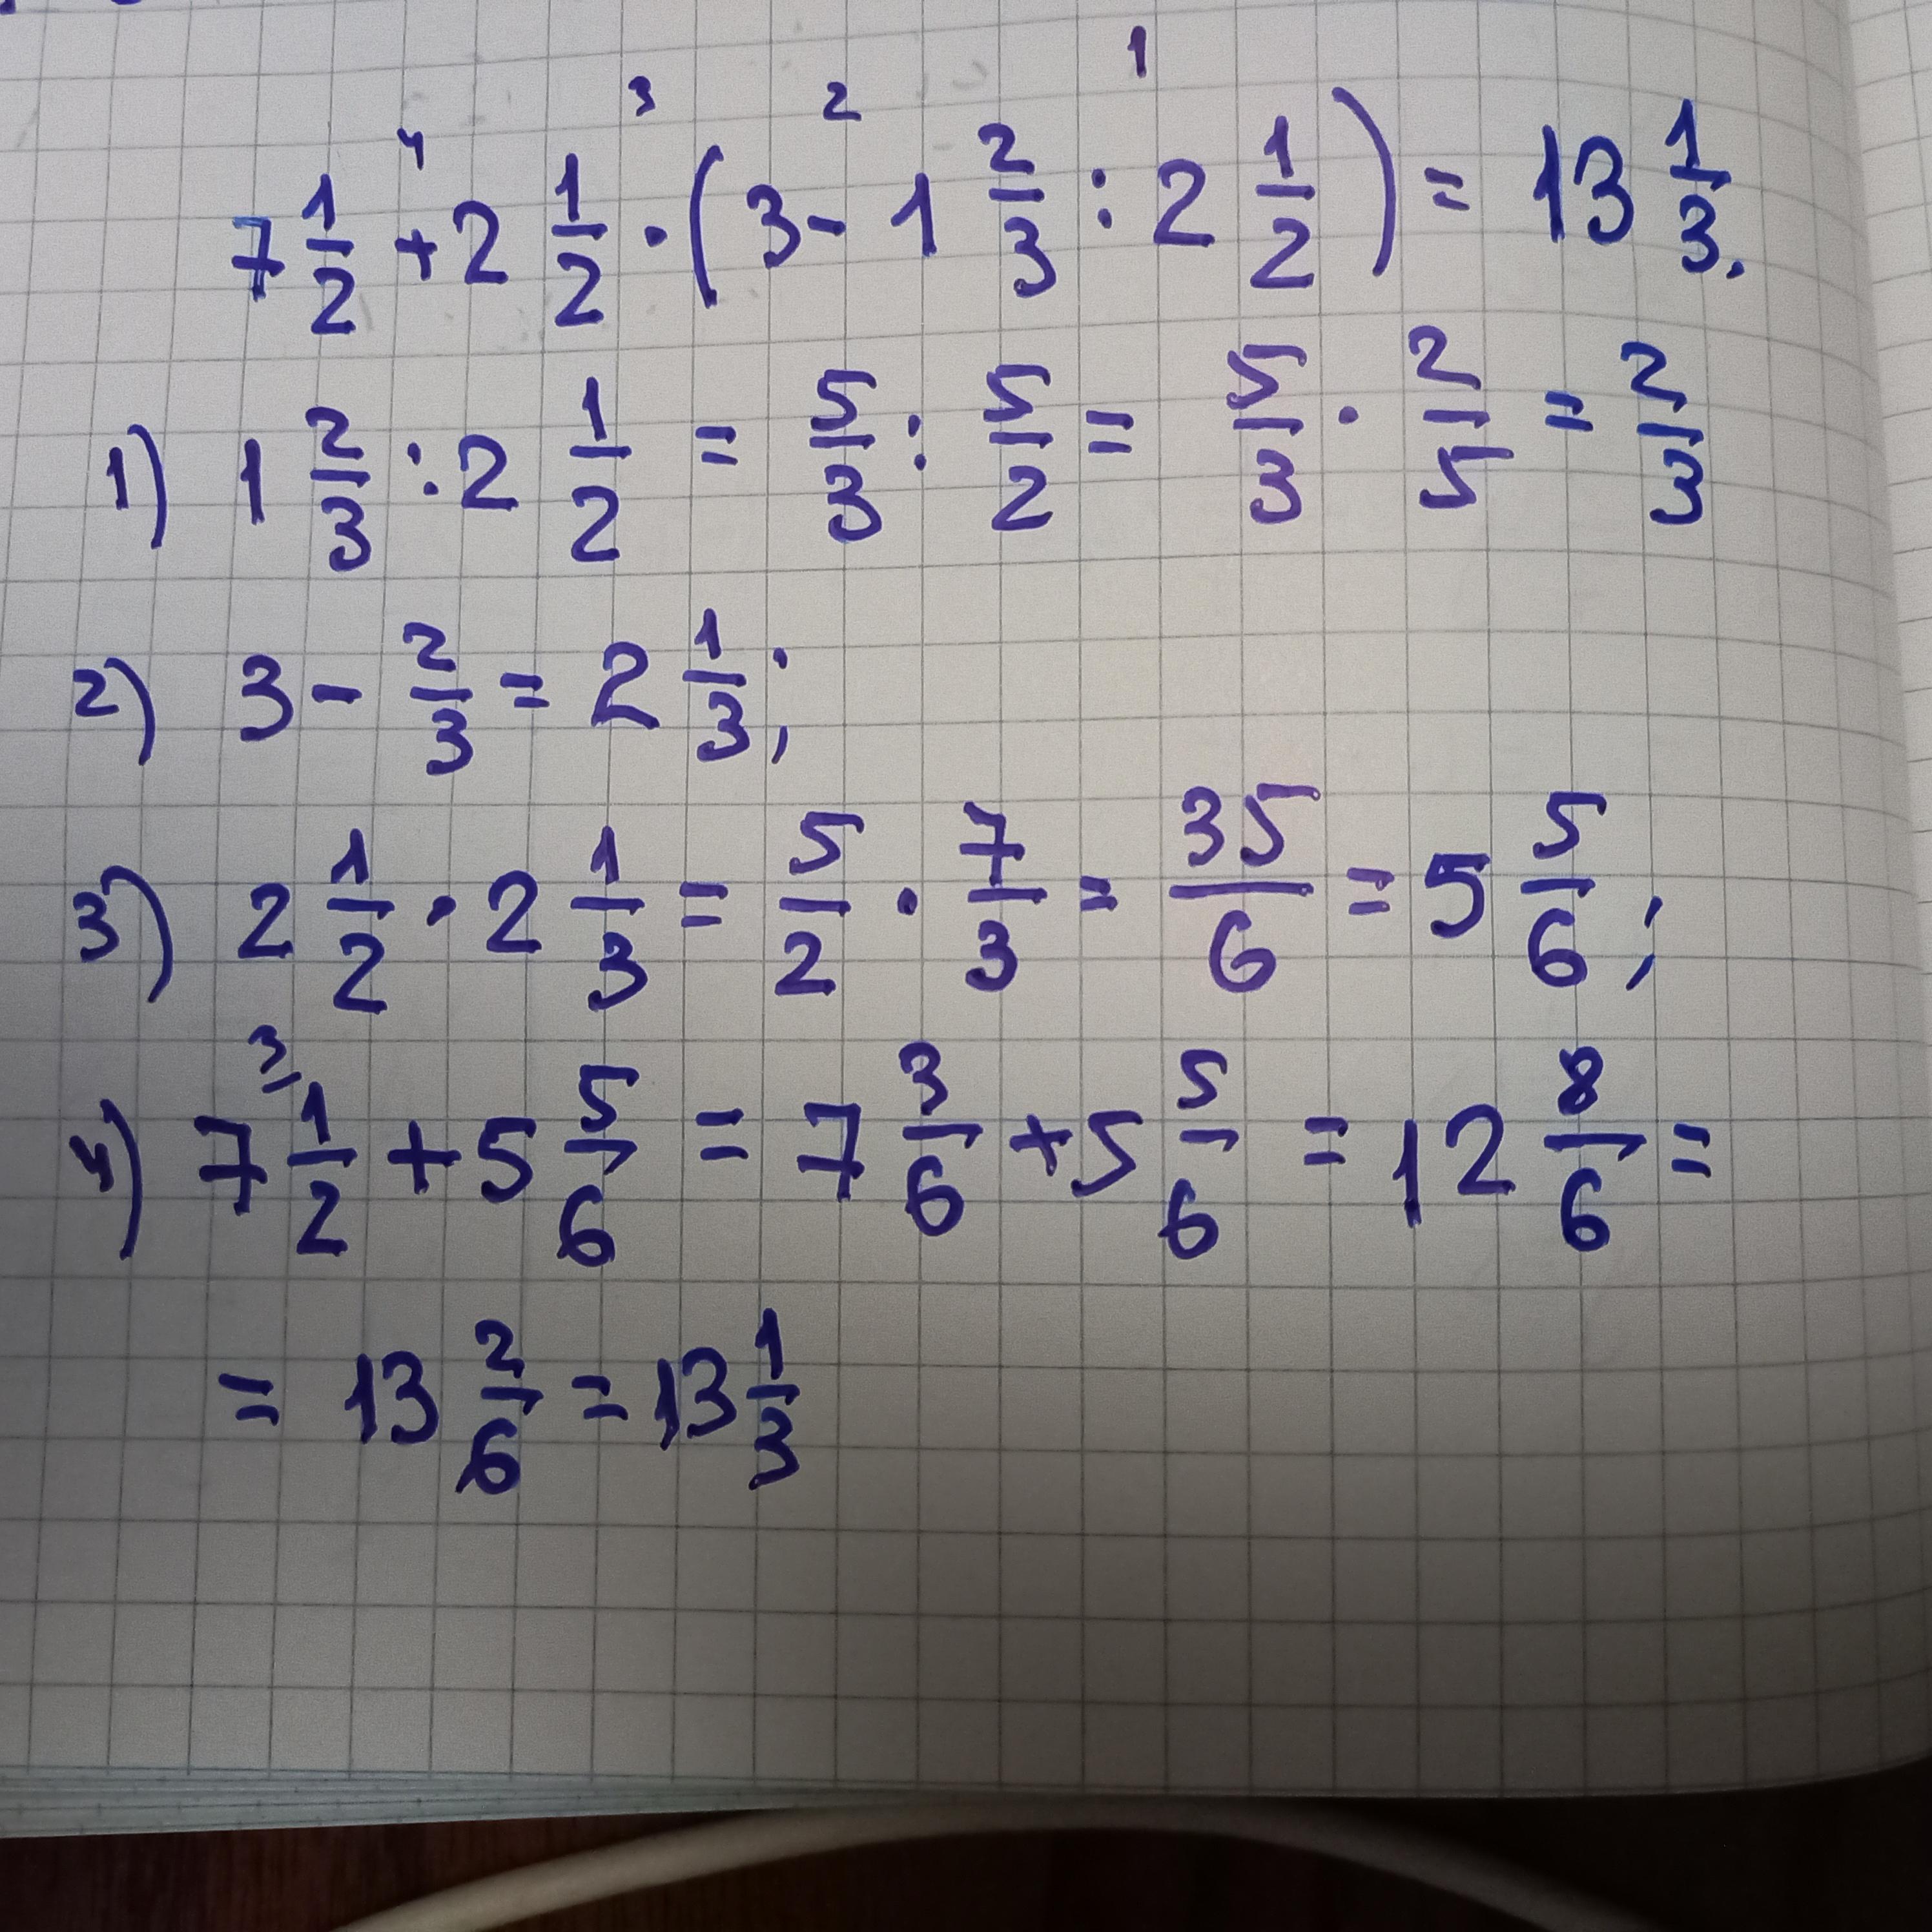 4 3 2 1
7 1/2 + 2 1/2 · (3 - 1 2/3 : 2 1/2) = 13 1/3.
1) 1 2/3 : 2 1/2 = 5/3 : 5/2 = 5/3 · 2/5 = 2/3
2) 3 - 2/3 = 2 1/3;
3) 2 1/2 · 2 1/3 = 5/2 · 7/3 = 35/6 = 5 5/6;
3
4) 7 1/2 + 5 5/6 = 7 3/6 + 5 5/6 = 12 8/6 =
= 13 2/6 = 13 1/3